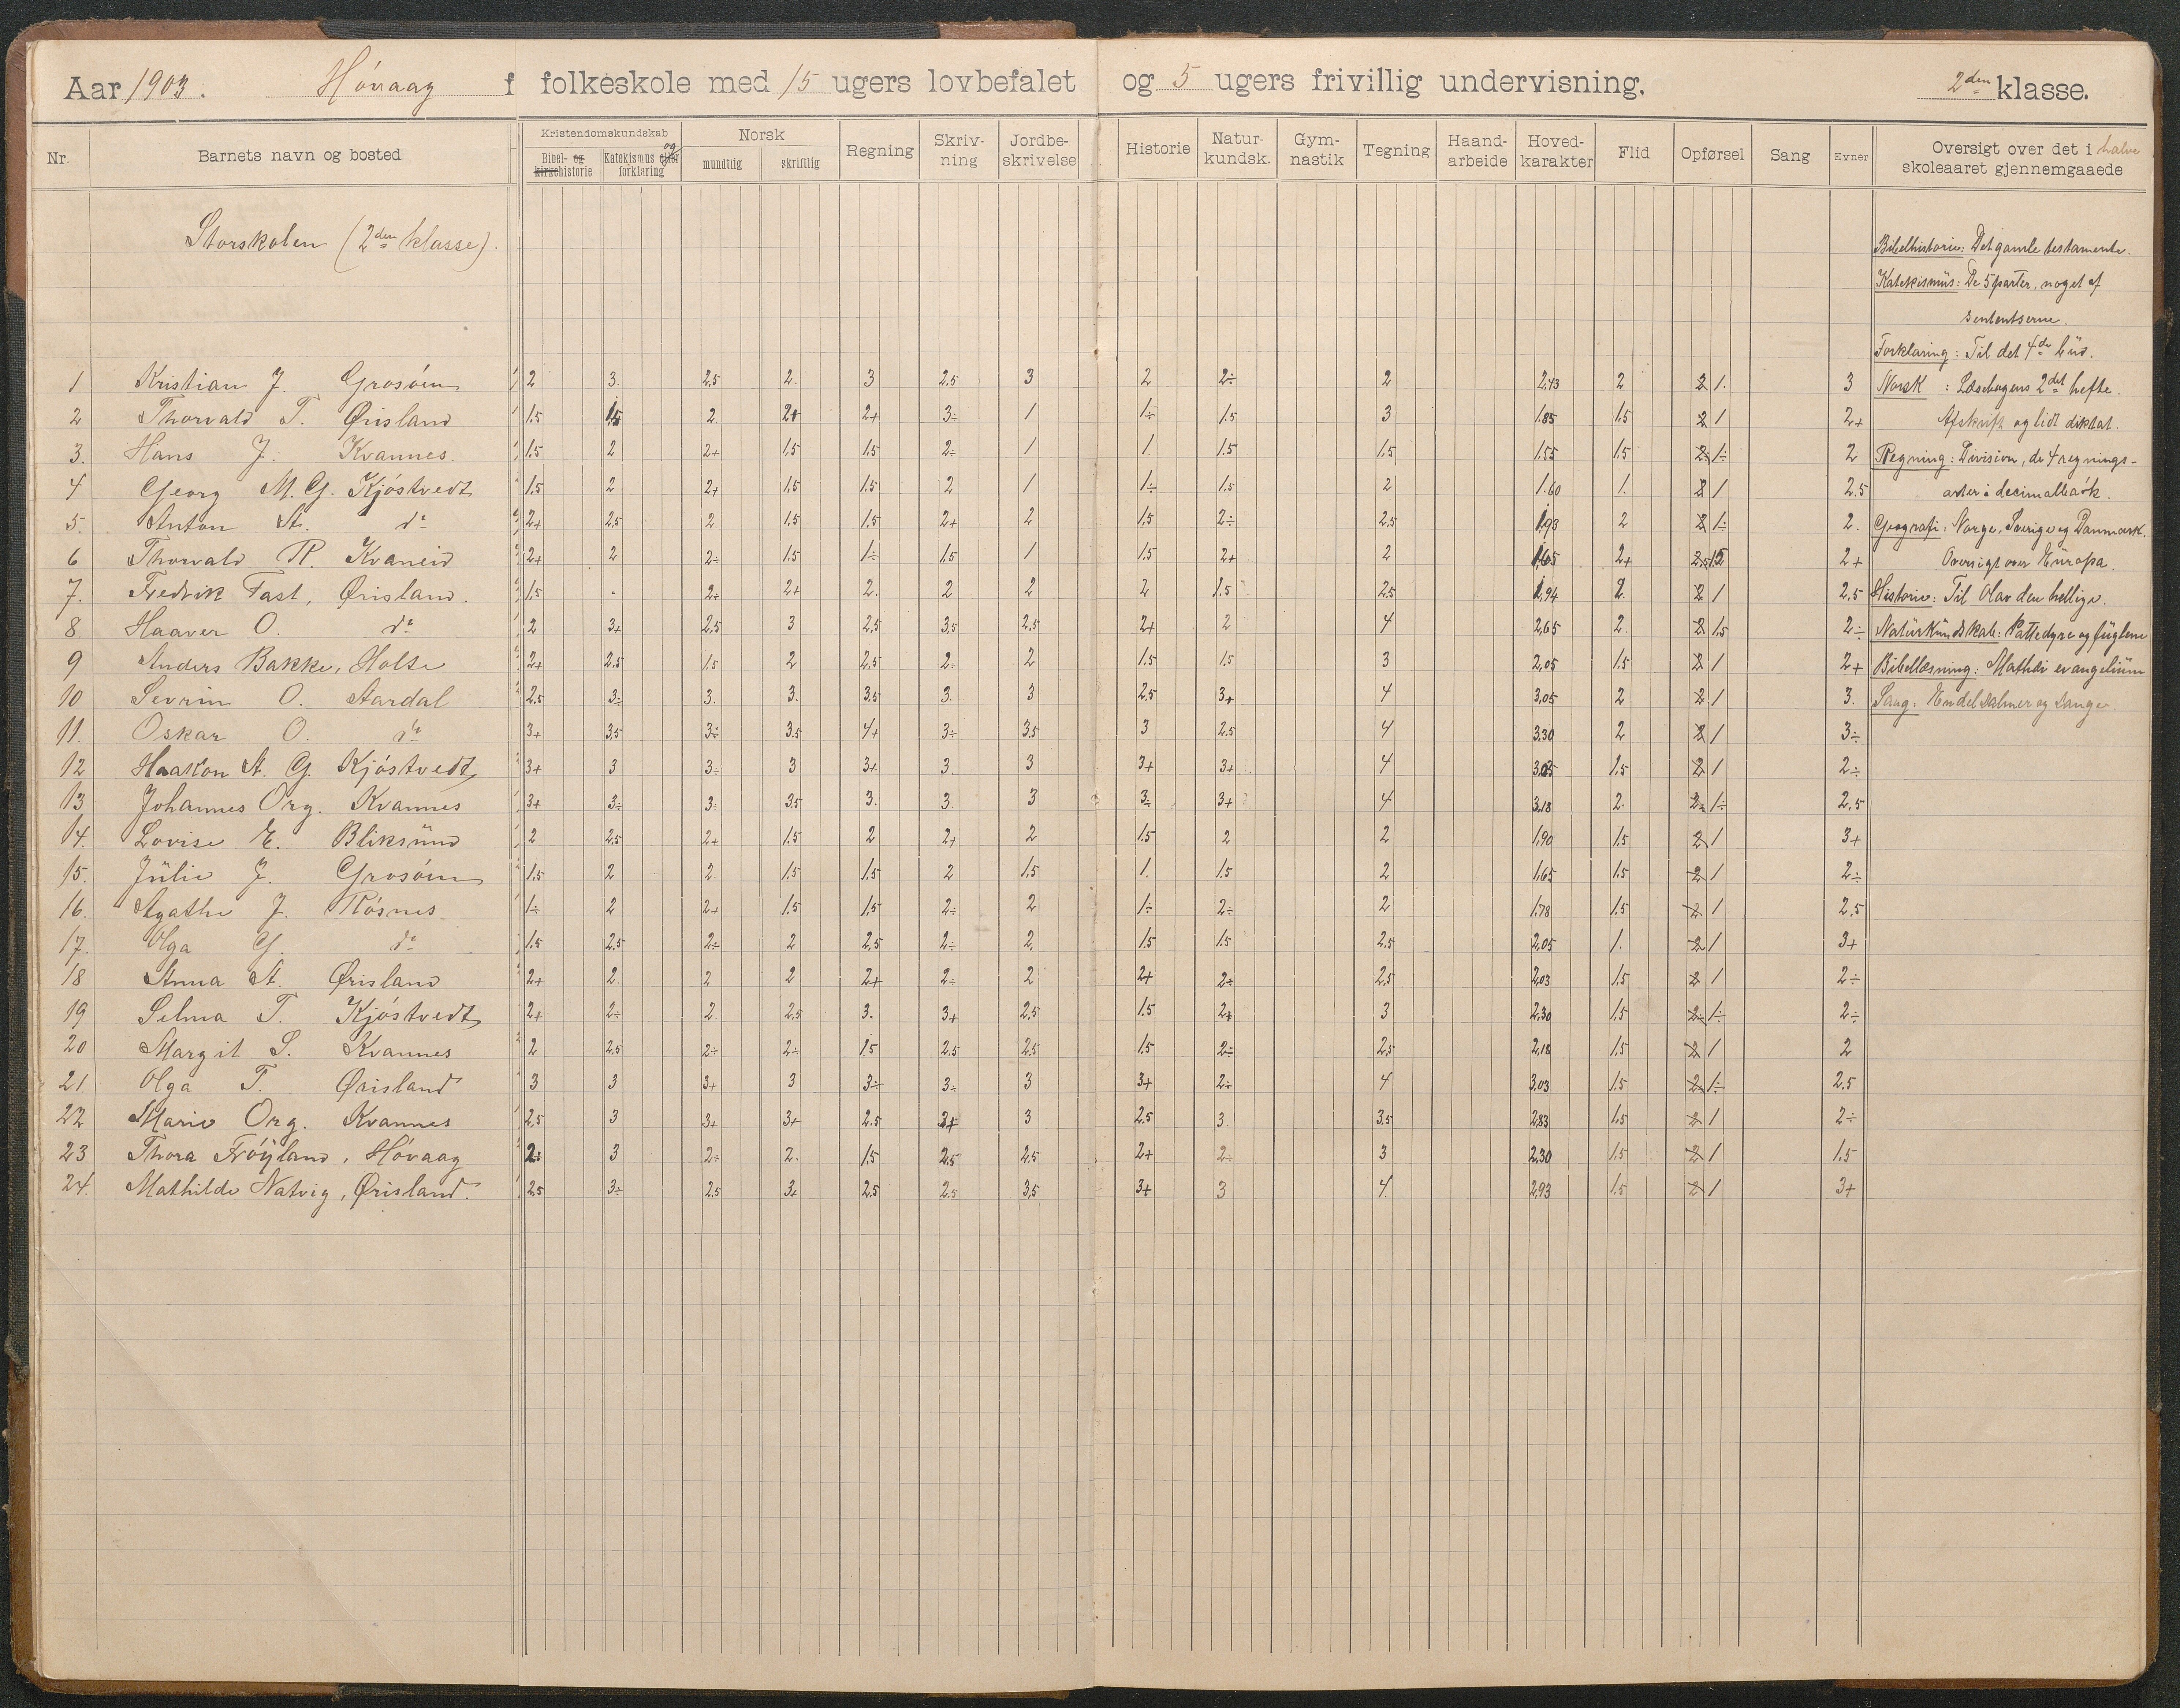 Aar 1903. Høvaag folkeskole med 15 ugers lovbefalet og 5 ugers frivillig undervisning. 2den klasse.
Nr. Barnets navn og bosted Kristendomskundskab Norsk Regning Skriv-ning Jordbe-skrivelse Historie Natur-kundsk. Gym-nastik Tegning Haand-arbeide Hoved-karakter Flid Opførsel Sang Evner Oversigt over det i halve skoleaaret gjennemgaaede
Bibel- og kirkehistorie Katekismus og forklaring mundtlig skriftlig
Storskolen (2den klasse).
Bibelhistorie: Det gamle testamente.
Katekismus: De 5 parter, noget af
sententserne.
Forklaring: Til det 4de bud.
1 Kristian J. Grosøen 2 3. 2,5 2. 3 2,5 3 2 2÷ 2 2,43 2 2 1. 3 Norsk : Læsebogens 2det hefte.
2 Thorvald T. Ørisland 1.5 1.5 2. 2+ 2+ 3÷ 1 1÷ 1.5 3 1.85 1.5 2 1 2+ Afskrift og lidt diktat.
3. Hans J. Kvannes. 1.5 2 2+ 1.5 1.5 2÷ 1 1. 1.5 1.5 1.55 1.5 2÷ 1÷ 2 Regning: Division, de 4 regnings-
4 Georg M. G. Kjøstvedt 1.5 2 2+ 1.5 1.5 2 1 1÷ 1.5 2 1.60 1. 2 1 2.5 arter i decimalbrøk.
5. Anton A. do 2+ 2,5 2. 1.5 1.5 2+ 2 1.5 2÷ 2,5 1,93 2 2 1÷ 2. Geografi: Norge, Sverige og Danmark.
6 Thorvald R. Kvaneid 2+ 2 2÷ 1.5 1÷ 1.5 1 1.5 2+ 2 1,65 2+ 2,5 1,5 2+ Oversigt over Europa.
7. Fredrik Fast, Ørisland. 1.5 - 2÷ 2+ 2. 2 2 2 1.5 2,5 1,94 2. 2 1 2,5 Historie: Til Olav den hellige.
8. Haaver O. do 2 3+ 2,5 3 2,5 3,5 2,5 2+ 2 4 2,65 2. 2 1.5 2÷ Naturkundskab: Pattedyre og fuglene
9 Anders Bakke, Holte 2+ 2,5 1.5 2 2,5 2÷ 2 1.5 1.5 3 2,05 1.5 2 1 2+ Bibellæsning: Mathæi evangelium
10 Sevrin O. Aardal 2.5 3÷ 3. 3. 3.5 3. 3 2.5 3+ 4 3,05 2 2 1 3. Sang: Endel salmer og sange.
11. Oskar O. do 3+ 3,5 3÷ 3.5 4+ 3÷ 3,5 3 2.5 4 3,30 2 2 1 3÷
12 Haakon A. G. Kjøstvedt, 3+ 3 3÷ 3 3+ 3. 3 3+ 3+ 4 3,05 1.5 2 1 2÷
13 Johannes Org. Kvannes 3+ 3÷ 3÷ 3.5 3. 3. 3 3÷ 3+ 4 3,18 2. 2÷ 1÷ 2,5
14. Lovise E. Bliksund 2 2.5 2+ 1.5 2 2+ 2 1.5 2 2 1,90 1.5 2 1 3+
15. Julie J. Grosøen 1.5 2 2. 1.5 1.5 2 1.5 1. 1.5 2 1,65 1.5 2 1 2÷
16. Agathe J. Røsnes 1÷ 2 2+ 1.5 1,5 2÷ 2 1÷ 2÷ 2 1.78 1.5 2 1 2.5
17. Olga G. do 1.5 2.5 2÷ 2 2,5 2÷ 2. 1.5 1.5 2,5 2,05 1. 2 1 3+
18 Anna A. Ørisland 2+ 2. 2 2 2+ 2÷ 2 2+ 2÷ 2,5 2,03 1.5 2 1 2÷
19 Selma T. Kjøstvedt, 2+ 2÷ 2. 2.5 3. 3+ 2,5 1.5 2+ 3 2,30 1.5 2÷ 1÷ 2÷
20 Margit S. Kvannes 2 2,5 2÷ 2÷ 1.5 2,5 2.5 1.5 2÷ 2,5 2,18 1.5 2 1 2
21. Olga T. Ørisland 3 3 3+ 3 3÷ 3÷ 3 3+ 2÷ 4 3,03 1.5 2÷ 1÷ 2.5
22 Marie Org. Kvannes 2,5 3 3+ 3+ 2.5 3+ 3 2.5 3. 3.5 2,83 1.5 2 1 2÷
23 Thora Frøyland, Høvaag 2÷ 3 2÷ 2. 1.5 2,5 2,5 2+ 2÷ 3 2,30 1.5 2 1 1.5
24. Mathilde Natvig, Ørisland. 2,5 3÷ 2,5 3+ 2,5 2.5 3,5 3+ 3 4. 2,93 1.5 2 1 3+